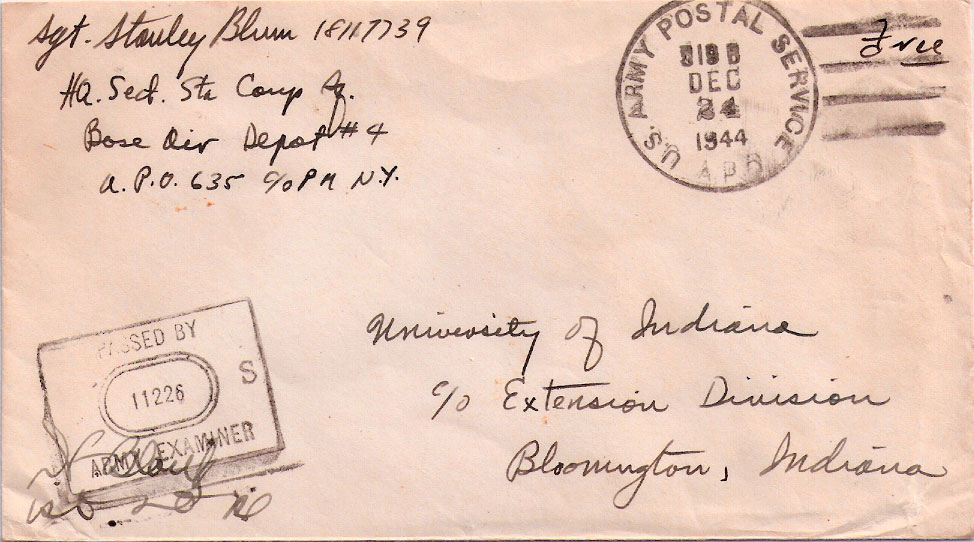 Sgt. Stanley Blum 18117739
HQ. Sect. Sta Comp Sq.
Base Air Depot #4
A.P.O. 635 c/o PM N.Y.
U.S. ARMY POSTAL SERVICE
DEC
24
1944
A.P.O.
Free
University of Indiana
c/o Extension Division
Bloomington, Indiana
PASSED BY
11226
S
ARMY EXAMINER